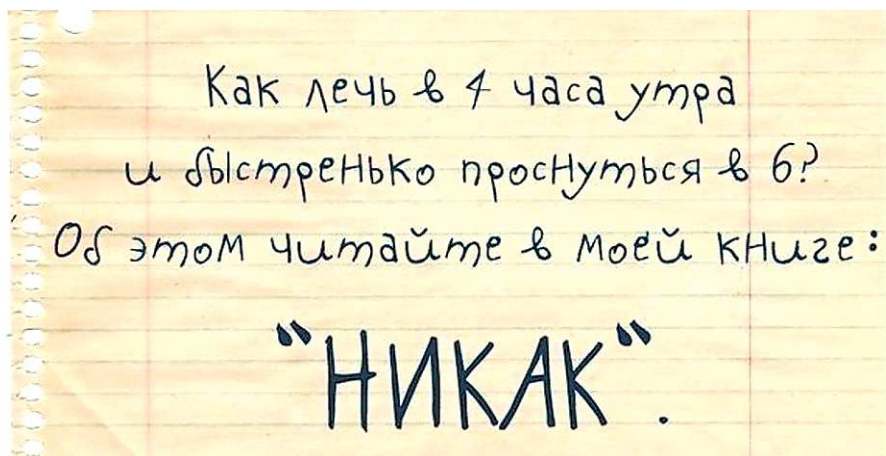 Как лечь в 4 часа утра
и быстренько проснуться в 6?
Об этом читайте в моей книге:
"НИКАК".